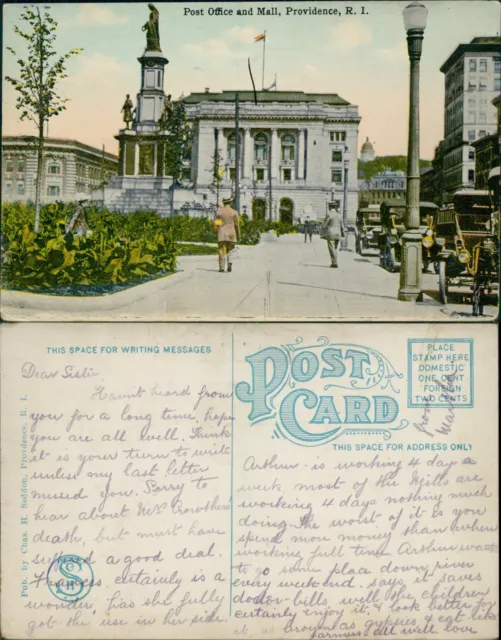 Post Office and Mall, Providence, R. I.
THIS SPACE FOR WRITING MESSAGES
Dear Sister,
Havnt heard from
you for a long time, hope
you are all well. Think
it is your turn to write
unless my last letter
missed you. Sorry to
hear about Mrs Crowther's
death, but must have
suffered a good deal.
Frances certainly is a
wonder, has she fully
got the use in her side
Pub. by Chas. H. Seddon, Providence, R. I.
POST CARD
PLACE
STAMP HERE
DOMESTIC
ONE CENT
FOREIGN
TWO CENTS
from
THIS SPACE FOR ADDRESS ONLY
Arthur is working 4 days a
week most of the Mills are
working 4 days nothing much
doing. The worst of it is you
spend more money than when
working full time Arthur wants
to go some place down river
every weekend. says it saves
doctor-bills, well the children
certainly enjoy it, & look better for
it, as brown as gypsies & eat like
farmers, all well love